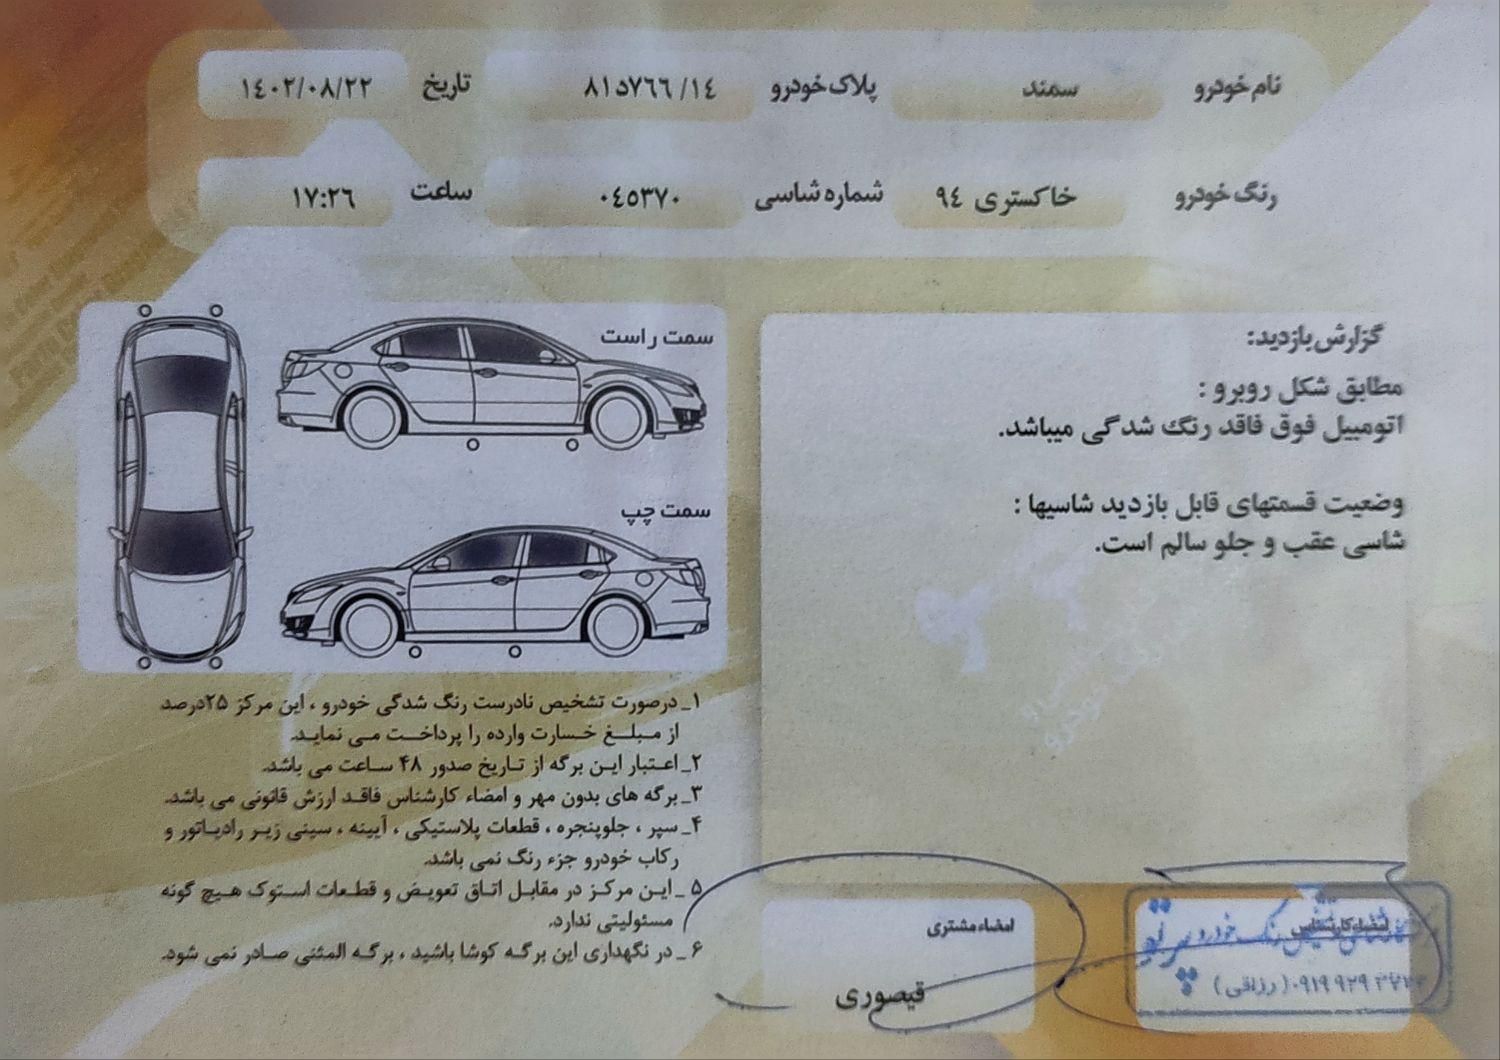 نام خودرو سمند پلاک خودرو ۸۱د۷۶۶ /۱٤ تاریخ ۱٤۰۲/۰۸/۲۲
رنگ خودرو خاکستری ۹٤ شماره شاسی ۰٤٥۳۷۰ ساعت ۱۷:۲٦
گزارش بازدید:
مطابق شکل روبرو :
اتومبیل فوق فاقد رنگ شدگی میباشد.
وضعیت قسمتهای قابل بازدید شاسیها :
شاسی عقب و جلو سالم است.
سمت راست
سمت چپ
۱_ درصورت تشخیص نادرست رنگ شدگی خودرو ، این مرکز ۲۵درصد
از مبلغ خسارت وارده را پرداخت می نماید.
۲_ اعتبار این برگه از تاریخ صدور ۴۸ ساعت می باشد.
۳_ برگه های بدون مهر و امضاء کارشناس فاقد ارزش قانونی می باشد.
۴_ سپر ، جلوپنجره ، قطعات پلاستیکی ، آیینه ، سینی زیر رادیاتور و
رکاب خودرو جزء رنگ نمی باشد.
۵_ این مرکز در مقابل اتاق تعویض و قطعات استوک هیچ گونه
مسئولیتی ندارد.
۶_ در نگهداری این برگه کوشا باشید ، برگه المثنی صادر نمی شود.
امضاء کارشناس
رنگ خودرو
(رزاقی)
امضاء مشتری
قیصوری